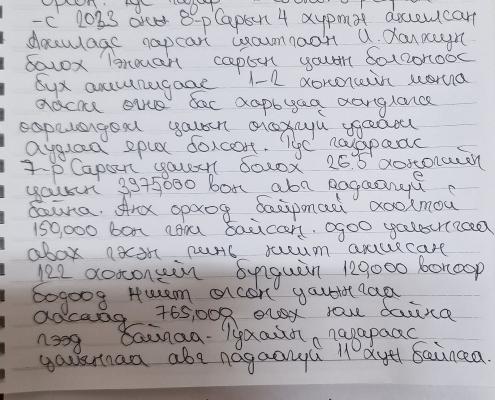 -с 2023 оны 8-р Сарын 4 хүртэл ажилсан
Ажилладс гарсан шалтгаан
болох Гэнман сарын цалин болгоноос
бүх ажилчидаас 1-2 хоногийн мөнгө
хасаж өгнө бас харьцаа хандлага
цалин өгөхгүй удаан
яриа болсон. Тус газараас
7-р Сарын цалин болох 26.5 хоногийн
цалин 3975,000 вон авч чадаагүй
байна. Анх ороход байртай хоолтой
150,000 вон гэж байсан. одоо цалингаа
авах гэсэн чинь нийт ажилсан
122 хоногийн бүгдийн 120,000 воноор
бодоод нийт олсон цалингаа
хасаад 765,000 өгөх юм байна
гээд байгаа. Тухайн газараас
цалингаа авч чадаагүй 11 хүн байгаа.